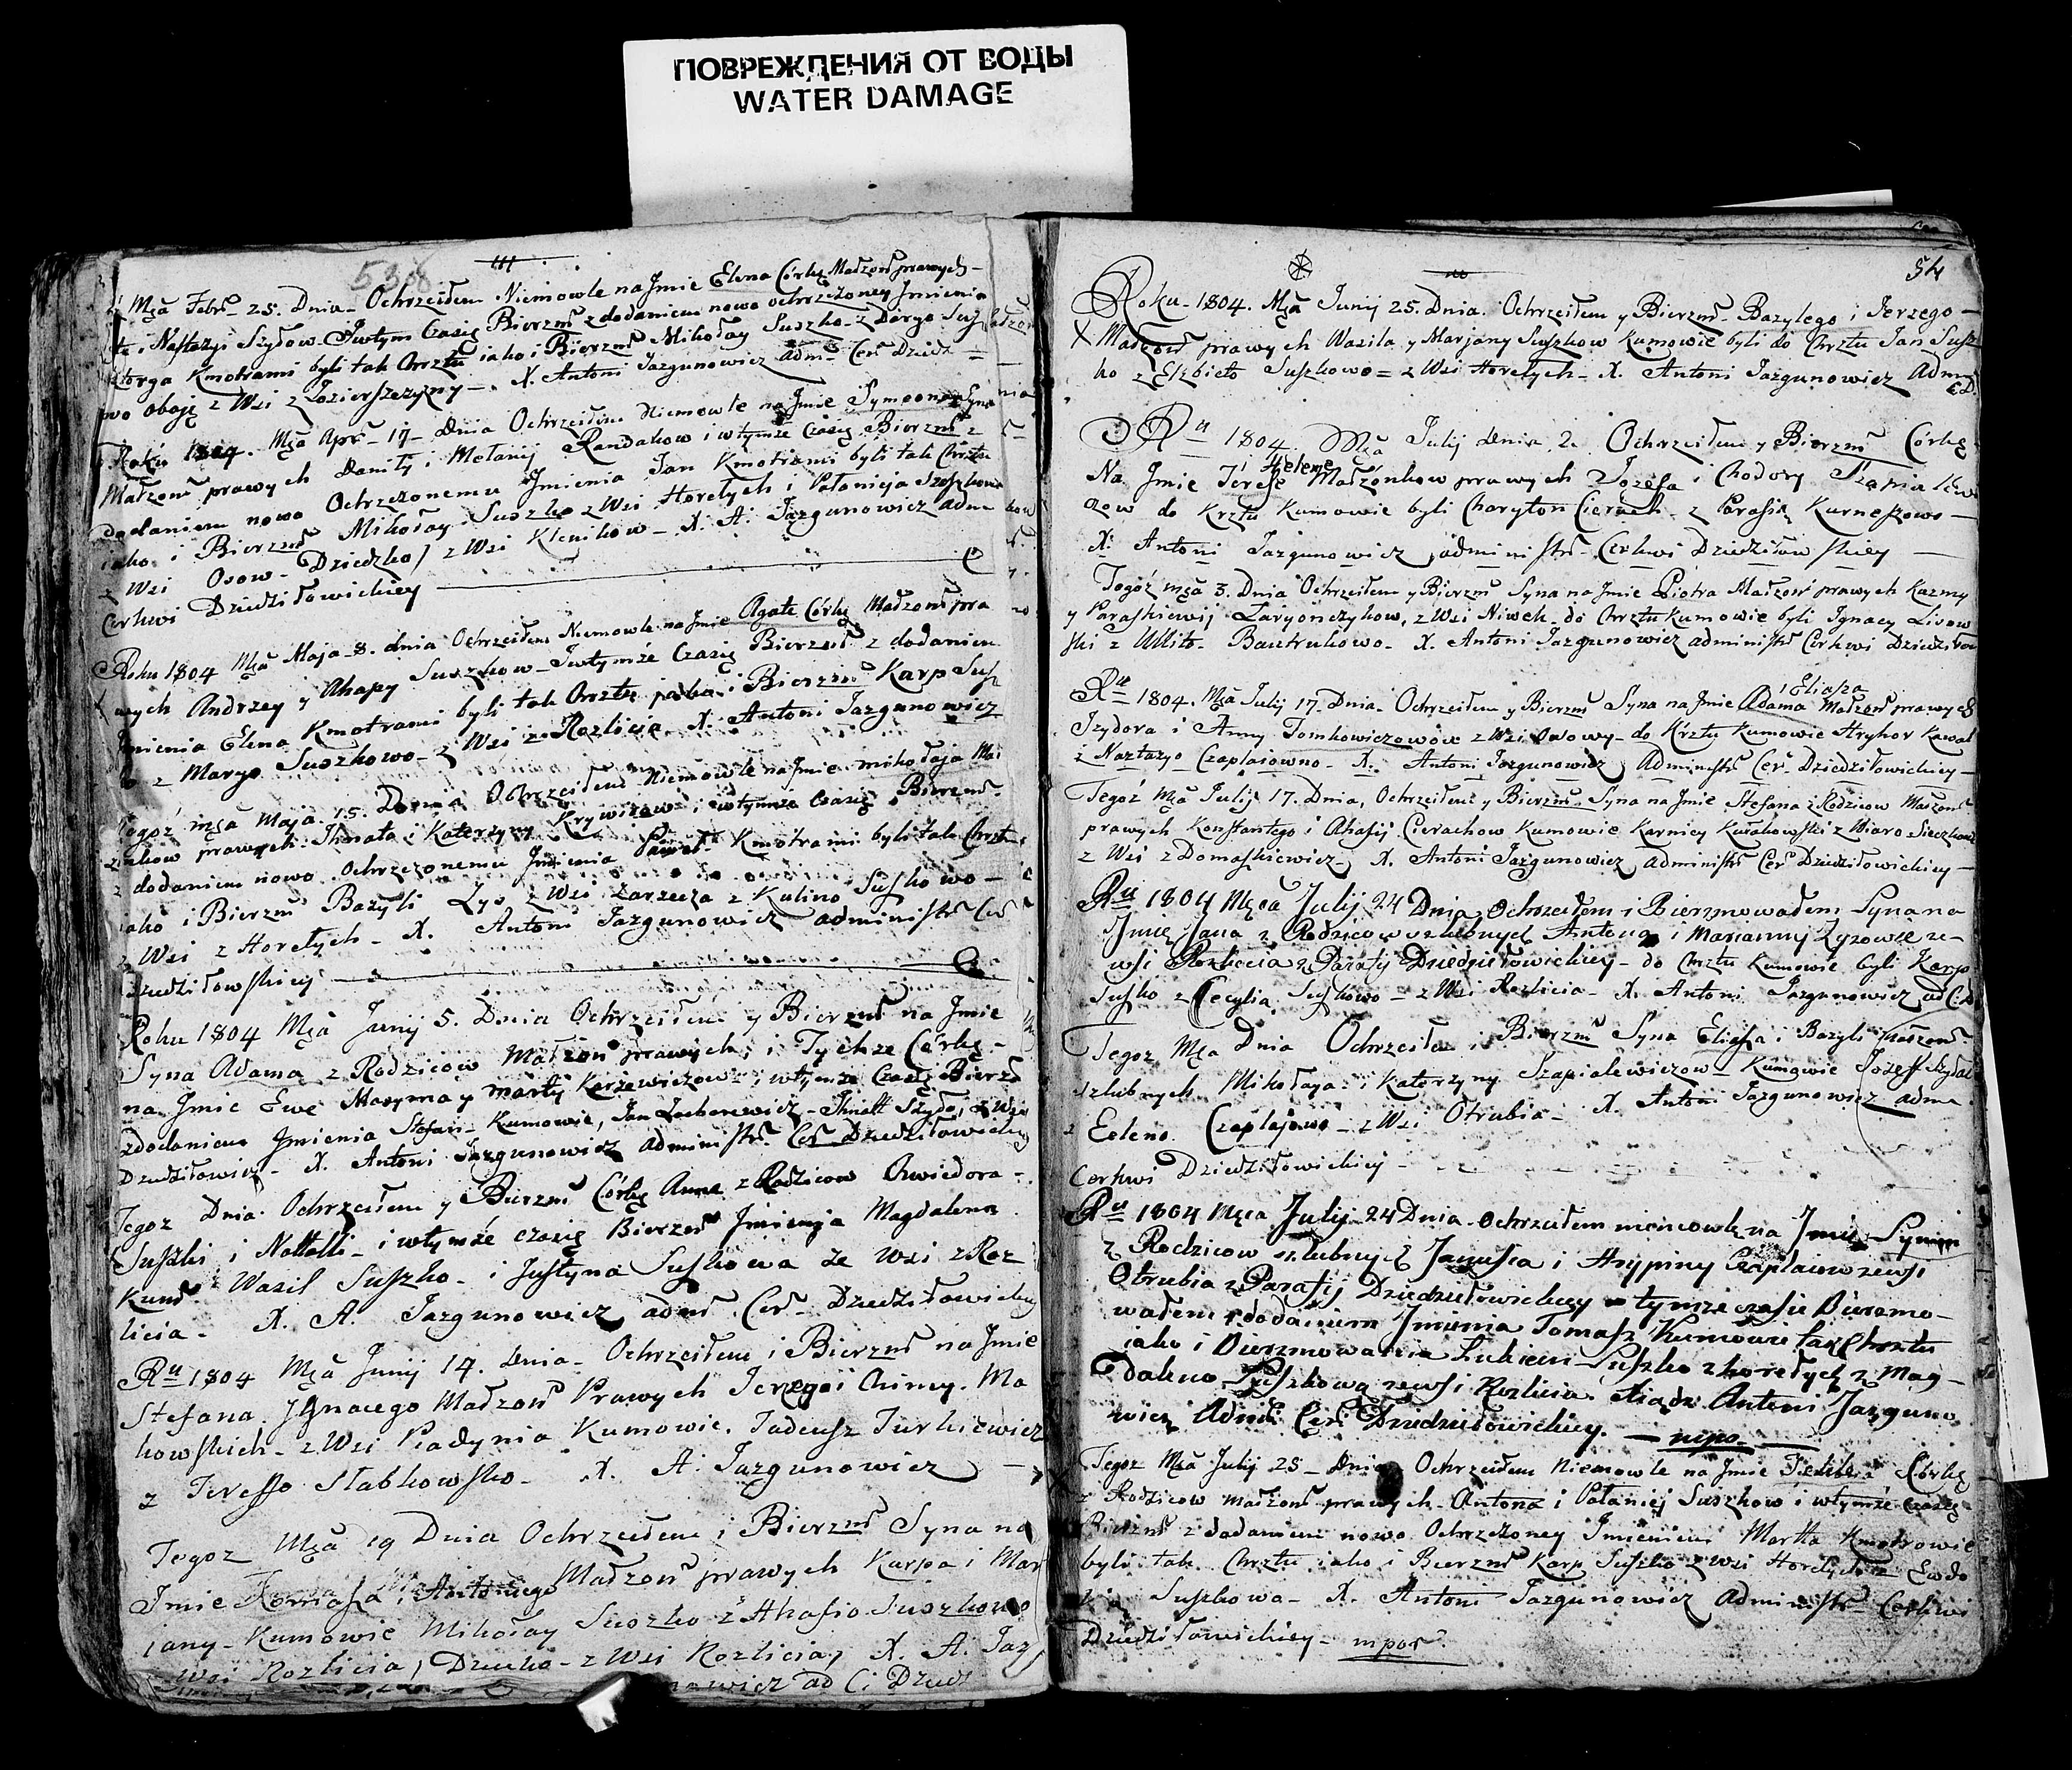 ПОВРЕЖДЕНИЯ ОТ ВОДЫ
WATER DAMAGE
538
Mca Febr 25. Dnia Ochrzciłem Niemowle na Jmie Elena Córkę Małżoń prawych
i Nastazyi Szydow Jwtym Czasię Bierzm z dodaniem nowo ochrzczoney Jmienia
Kmotrami byli tak Chrztu iako i Bierzm Mikołay Suszko z Daryo
wo oboję z Wsi z . X. Antoni Jazgunowicz Adm Cer Dziedz
Roku 1804. Mca Apr 17 Dnia Ochrzciłem Niemowle na Jmie Symeona Syna
Małzoń prawych Daniły i Melanij Randakow i wtymże Czasię Bierzm z
dodaniem nowo Ochrzczonemu Jmienia Jan Kmotrami byli tak Chrztu
iako i Bierzm Mikołay Suszko z Wsi Horełych i Połanieja
z Wsi Osow Dziedzko z Wsi Klenikow X. A. Jazgunowicz adm
Cerkwi Dziedziłowickiey
Roku 1804 Mca Maja 8. dnia Ochrzciłem Niemowle na Jmie Agate Córkę Małzoń pra
wych Andrzey y Ahapy Suszkow Jwtymże Czasię Bierzm z dodaniem
Jmienia Elena Kmotrami byli tak Chrztu jako i Bierzm Karp Susz
ko z Maryo Suszkowo z Wsi z Rozlicia X. Antoni Jazgunowicz
Togoż mca Maja 15. Dnia Ochrzciłem Niemowle na Jmie Mikołaja Mał
zonkow prawych Jhnata i Katerzyny Krywizow i wtymże Czasię Bierzm
z dodaniem nowo Ochrzczonemu Jmienia Paweł Kmotrami byli tak Chrztu
iako i Bierzm Bazyli Łys z Wsi Zarzecza z Kulino Suszkowo
z Wsi z Horełych X. Antoni Jazgunowicz administr Cer
Dziedziłowskiey
Roku 1804 Mca Junij 5. Dnia Ochrzciłem y Bierzm na Jmie
Syna Adama z Rodziców Małzoń prawych, i Tychże Córkę
na Jmie Ewe Maxyma y Marty Karżewiczow i wtymże Czasię Bierzm
zdodaniem Jmienia Stefan Kumowie, Jan Lachorewicz Jhnatt Szydo, z Wsi
Dziedziłowicz X. Antoni Jazgunowicz administr. Cer Dziedziłowickiey
Tegoz Dnia Ochrzciłem y Bierzm Córkę Anne z Rodzicow Chwiedora
Suszki i Nattalli i wtymże czasię Bierzm Jmienja Magdalena
Kumo Wasil Suszko i Justyna Suszkowa ze Wsi z Roz
licia X. A. Jazgunowicz adm Cer Dziedziłowickiey
Ru 1804 Mca Junij 14. Dnia Ochrzciłem i Bierzm na Jmie
Stefana Jgnacego Małzoń Prawych Jerzego i Chimy. Ma
kowskich z Wsi Piadynia Kumowie. Tadeusz Jurkiewicz
z Teresso Słabkowsko X. A. Jazgunowicz
Tegoz Mca 19 Dnia Ochrzciłem i Bierzm Syna na
Jmie Tomasza i Antoniego Małzoń prawych Karpa i Mar
jany Kumowie Mikołay Suszko z Ahafio Suszkowo
z Wsi Rozlicia, Dziecko z Wsi Rozlicia, X. A. Jaz
nowicz ad C: Dzied
54
Roku 1804. Mca Junij 25. Dnia. Ochrzciłem y Bierzm Bazylego i Jerzego
Małzoń prawych Wasila y Marjany Suszkow Kumowie byli do Chrztu Jan Susz
ko z Elzbieto Suszkowo z Wsi Horełych X. Antoni Jazgunowicz Adm
C:D.
Ru 1804 Mca Julij dnia 2. Ochrzciłem y Bierzm Córkę
Na Jmie Terese i Helene Małżonkow prawych Jozefa i Chodory Szapialew
ozow do Krztu Kumowie byli Charyton Cierach z Parasio Kurneszowo
X. Antoni Jazgunowicz administr Cerkwi Dziedziłowskiey
Togóż mca 3. Dnia Ochrzciłem y Bierzm Syna na Jmie Piotra Małzoń prawych Kazmy
y Paraskiewij Laryonczykow, z Wsi Niwek do Chrztu Kumowie byli Jgnacy Lisow
ski z Ullito Bautrukowo X. Antoni Jazgunowicz administr Cerkwi Dziedziłow
Ru 1804. Mca Julij 17. Dnia Ochrzciłem y Bierzm Syna na Jmie Adama i Eliasza Małzoń prawych
Jzydora i Anny Tomkowiczowow z Wsi Osowy do Krztu Kumowie Hryhor Kawal
z Nastazyo Czaplaiowno X. Antoni Jazgunowicz Administr Cer Dziedziłowickiey
Tegoż Mca Julij 17. Dnia, Ochrzciłem y Bierzm Syna na Jmie Stefana z Rodzicow Małzoń
prawych Konstantego i Ahafij Cierachow Kumowie Karnicy Kułakowski z Wiaro Sieczkowo
z Wsi z Domaszkiewicz X. Antoni Jazgunowicz Administr Cer Dziedziłowickiey
Ru 1804 Mca Julij 24 Dnia Ochrzciłem i Bierzmowałem Syna na
Jmię Jana z Rodzicow szlubnych Antona i Marianny Łysowie ze
wsi Rozlicia z Parafij Dziedziłowickiey do Chrztu Kumowie byli Karp
Suszko z Cecylia Suszkowo z Wsi Rozlicia X. Antoni Jazgunowicz ad C:D
Tegoz Mca Dnia Ochrzciłem i Bierzm Syna Eliasza i Bazyli Małzoń
szlubnych Mikołaya i Katerzyny Szapialewiczow Kumowie Jozeff Szydał
z Eeleno Czaplajowo z Wsi Otrubia X. Antoni Jazgunowicz adm
Cerkwi Dziedziłowickiey
Ru 1804 Mca Julij 24 Dnia Ochrzciłem niemowle na Jmie Symon
z Rodzicow szlubnych Janusza i Ahrypiny Czaplaiow zewsi
Otrubia z Parafij Dziedziłowickiey w tymże czasie Bierzmo
wałem z dodaniem Jmienia Tomasz Kumowie tak Chrztu
iako i Bierzmowania Łukiein Suszko z horełych z Mag
daleno Suszkową zewsi Rozlicia. Xiądz Antoni Jazguno
wicz Admi: Cer: Dziedziłowickiey. mpo.
Tegoz Mca Julij 25 Dnia Ochrzciłem Niemowle na Jmie Córkę
z Rodzicow małzoń prawych Antona i Połaniej Suszkow i wtymże czasię
Bierzm z dodaniem nowo Ochrzczoney Jmieniem Martta Kmotrowie
byli tak Chrztu iako i Bierzm Karp Suszko z Wsi Horełych z Ewdo
kia Suszkowa X. Antoni Jazgunowicz Administr Cerkwi
Dziedziłowickiey mpor